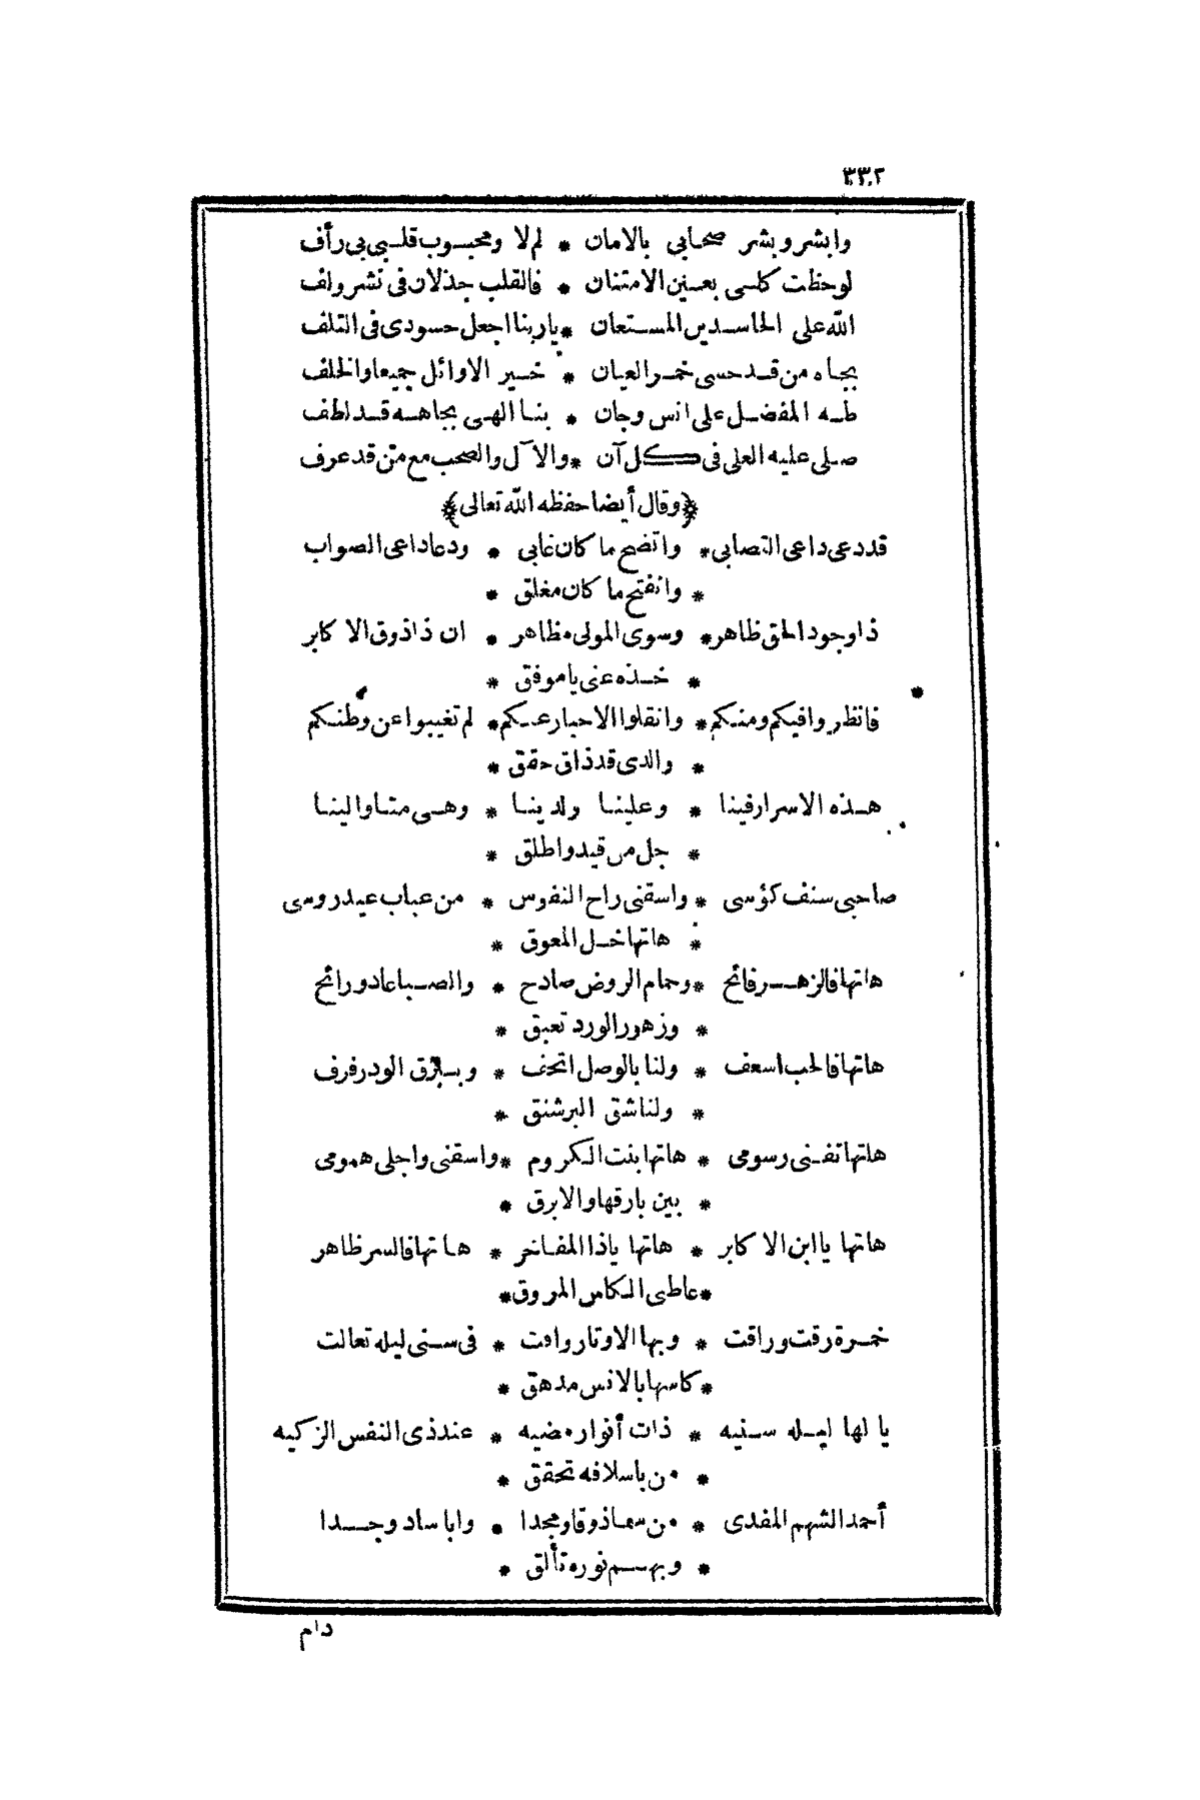 ٣٣٢
وابشر وبشر صحابي بالامان * لم لا ومحبوب قلبي بي رأف
لوحظت كاسي بعين الامتنان * فالقلب جذلان في نشر ولف
الله على الحاسدين المستعان * يا ربنا اجعل حسودي في التلف
بجاه من قد حسى خمر العيان * خير الاوائل جميعا والخلف
طه المفضل على انس وجان * بنا الهي بجاهه قد لطف
صلى عليه العلى في كل آن * والآل والصحب مع من قد عرف
﴿وقال أيضا حفظه الله تعالى﴾
قد دعى داعى التصابي * واتضح ما كان غابي * ودعا داعى الصواب
* وانفتح ما كان مغلق *
ذا وجود الحق ظاهر * وسوى المولى مظاهر * ان ذا ذوق الاكابر
* خذه عنى يا موفق *
فانظروا فيكم ومنكم * وانقلوا الاخبار عنكم * لم تغيبوا عن وطنكم
* والذى قد ذاق حقق *
هذه الاسرار فينا * وعلينا ولدينا * وهى منا والينا
* جل من قيد واطلق *
صاحبى سنف كؤسى * واسقنى راح النفوس * من عباب عيدروسى
* هاتها خل المعوق *
هاتها فالزهر فائح * وحمام الروض صادح * والصبا غاد ورائح
* وزهور الورد تعبق *
هاتها فالحب اسعف * ولنا بالوصل اتحف * وبساق الود رفرف
* ولنا شق البر شنق *
هاتها تفنى رسومى * هاتها بنت الكروم * واسقنى واجلى همومى
* بين بارقها والابرق *
هاتها يا ابن الاكابر * هاتها ياذا المفاخر * هاتها فالسر ظاهر
* عاطى الكاس المروق *
خمرة رقت وراقت * وبها الاوتار وافت * فى سنى ليله تعالت
* كاسها بالانس مدهق *
يا لها ليله سنيه * ذات أنوار مضيه * عند ذى النفس الزكيه
* من باسلافه تحقق *
أحمد الشهم المفدى * من سما ذوقا ومجدا * وابا ساد وجدا
* وبهم نوره تألق *
دام